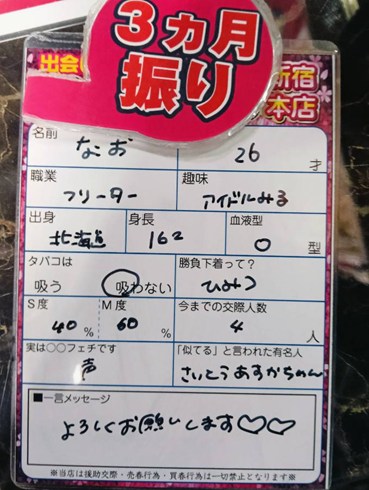 3ヵ月
振り
出会
新宿
本店
名前 なお 26 才
職業 フリーター
趣味 アイドルみる
出身 北海道
身長 162
血液型 O 型
タバコは 吸う 吸わない
勝負下着って? ひみつ
S度 40 %
M度 60 %
今までの交際人数 4 人
実は○○フェチです 声
「似てる」と言われた有名人 さいとうあすかちゃん
■一言メッセージ
よろしくお願いします♡♡
※当店は援助交際・売春行為・買春行為は一切禁止となります※